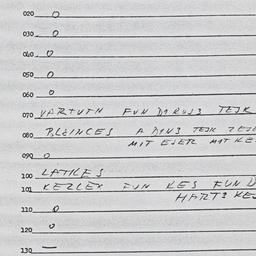 020 0
030 0
040 0
050 0
060 0
070 VARTUTN FUN DARUJS TEJK
080 BLEINCES A DANS TEJK
MIT EJER MIT KE
090 0
100 LATKES
101 KEZLEX FUN KES FUN
HARTS KES
110 0
120 0
130 —